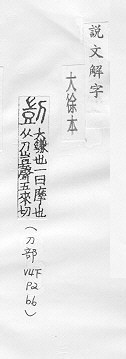 說文解字
大徐本
剴
大鎌也一曰摩也
从刀豈聲五來切
(刀部
V4下
P2
b6)